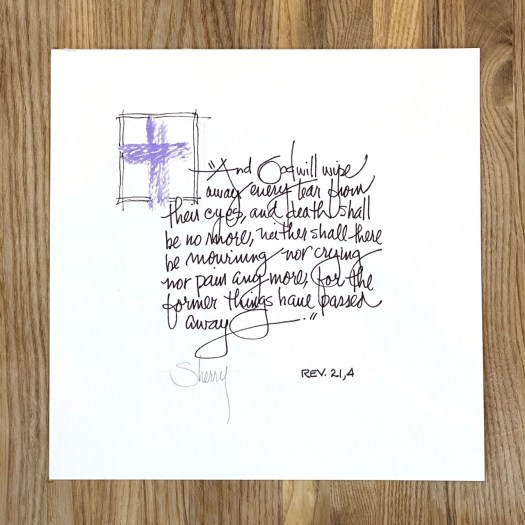 "And God will wipe
away every tear from
their eyes, and death shall
be no more, neither shall there
be mourning nor crying
nor pain any more, for the
former things have passed
away."
Sherry
REV. 21,4